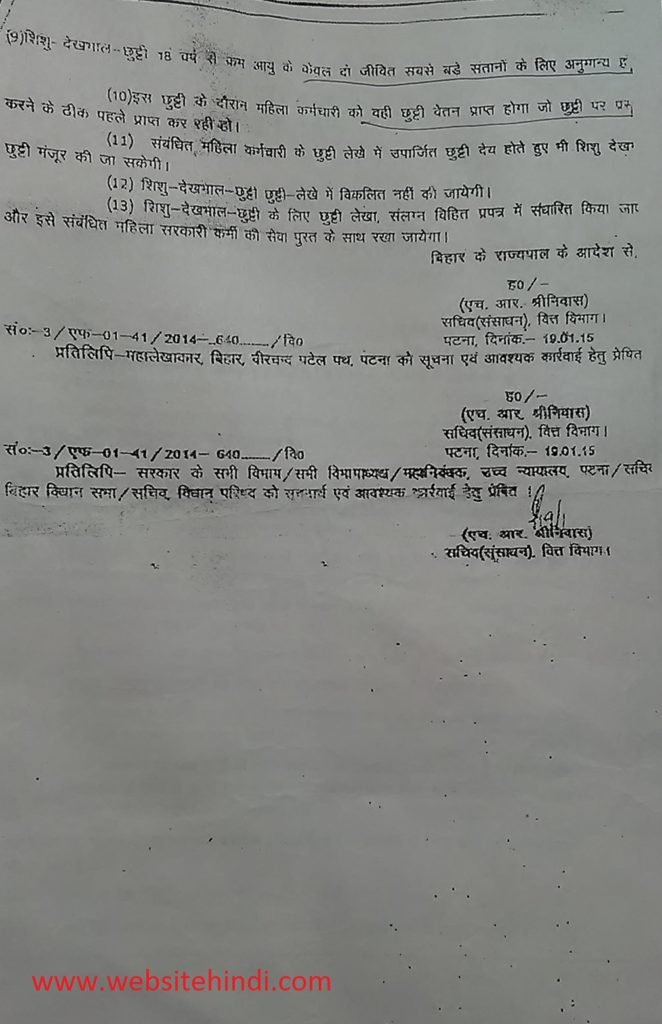 (9)शिशु- देखभाल-छुट्टी 18 वर्ष से कम आयु के केवल दो जीवित सबसे बडे सतानों के लिए अनुमान्य ह
(10)इस छुट्टी के दौरान महिला कर्मचारी को वही छुट्टी वेतन प्राप्त होगा जो छुट्टी पर प्रस्
करने के ठीक पहले प्राप्त कर रही हो।
(11) संबंधित महिला कर्मचारी के छुट्टी लेखे में उपार्जित छुट्टी देय होते हुए भी शिशु देखभा
छुट्टी मंजूर की जा सकेगी।
(12) शिशु-देखभाल-छुट्टी छुट्टी-लेखे में विकलित नहीं की जायेगी।
(13) शिशु-देखभाल-छुट्टी के लिए छुट्टी लेखा, संलग्न विहित प्रपत्र में संधारित किया जाए
और इसे संबंधित महिला सरकारी कर्मी की सेवा पुस्त के साथ रखा जायेगा।
बिहार के राज्यपाल के आदेश से,
ह0/-
(एच. आर. श्रीनिवास)
सचिव(संसाधन), वित्त विभाग।
सं०:-3/एफ-01-41/2014-..640......../वि0 पटना, दिनांक.- 19.01.15
प्रतिलिपि-महालेखाकार, बिहार, वीरचन्द पटेल पथ, पटना को सूचना एवं आवश्यक कार्रवाई हेतु प्रेषित
ह0/-
(एच. आर. श्रीनिवास)
सचिव(संसाधन), वित्त विभाग।
सं०:-3/एफ-01-41/2014- 640......../वि0 पटना, दिनांक.- 19.01.15
प्रतिलिपि- सरकार के सभी विभाग/सभी विभागाध्यक्ष/महानिबंधक, उच्च न्यायालय, पटना/सचिव
बिहार विधान सभा/सचिव, विधान परिषद को सूचनार्थ एवं आवश्यक कार्रवाई हेतु प्रेषित।
(एच. आर. श्रीनिवास)
सचिव(संसाधन), वित्त विभाग।
www.websitehindi.com